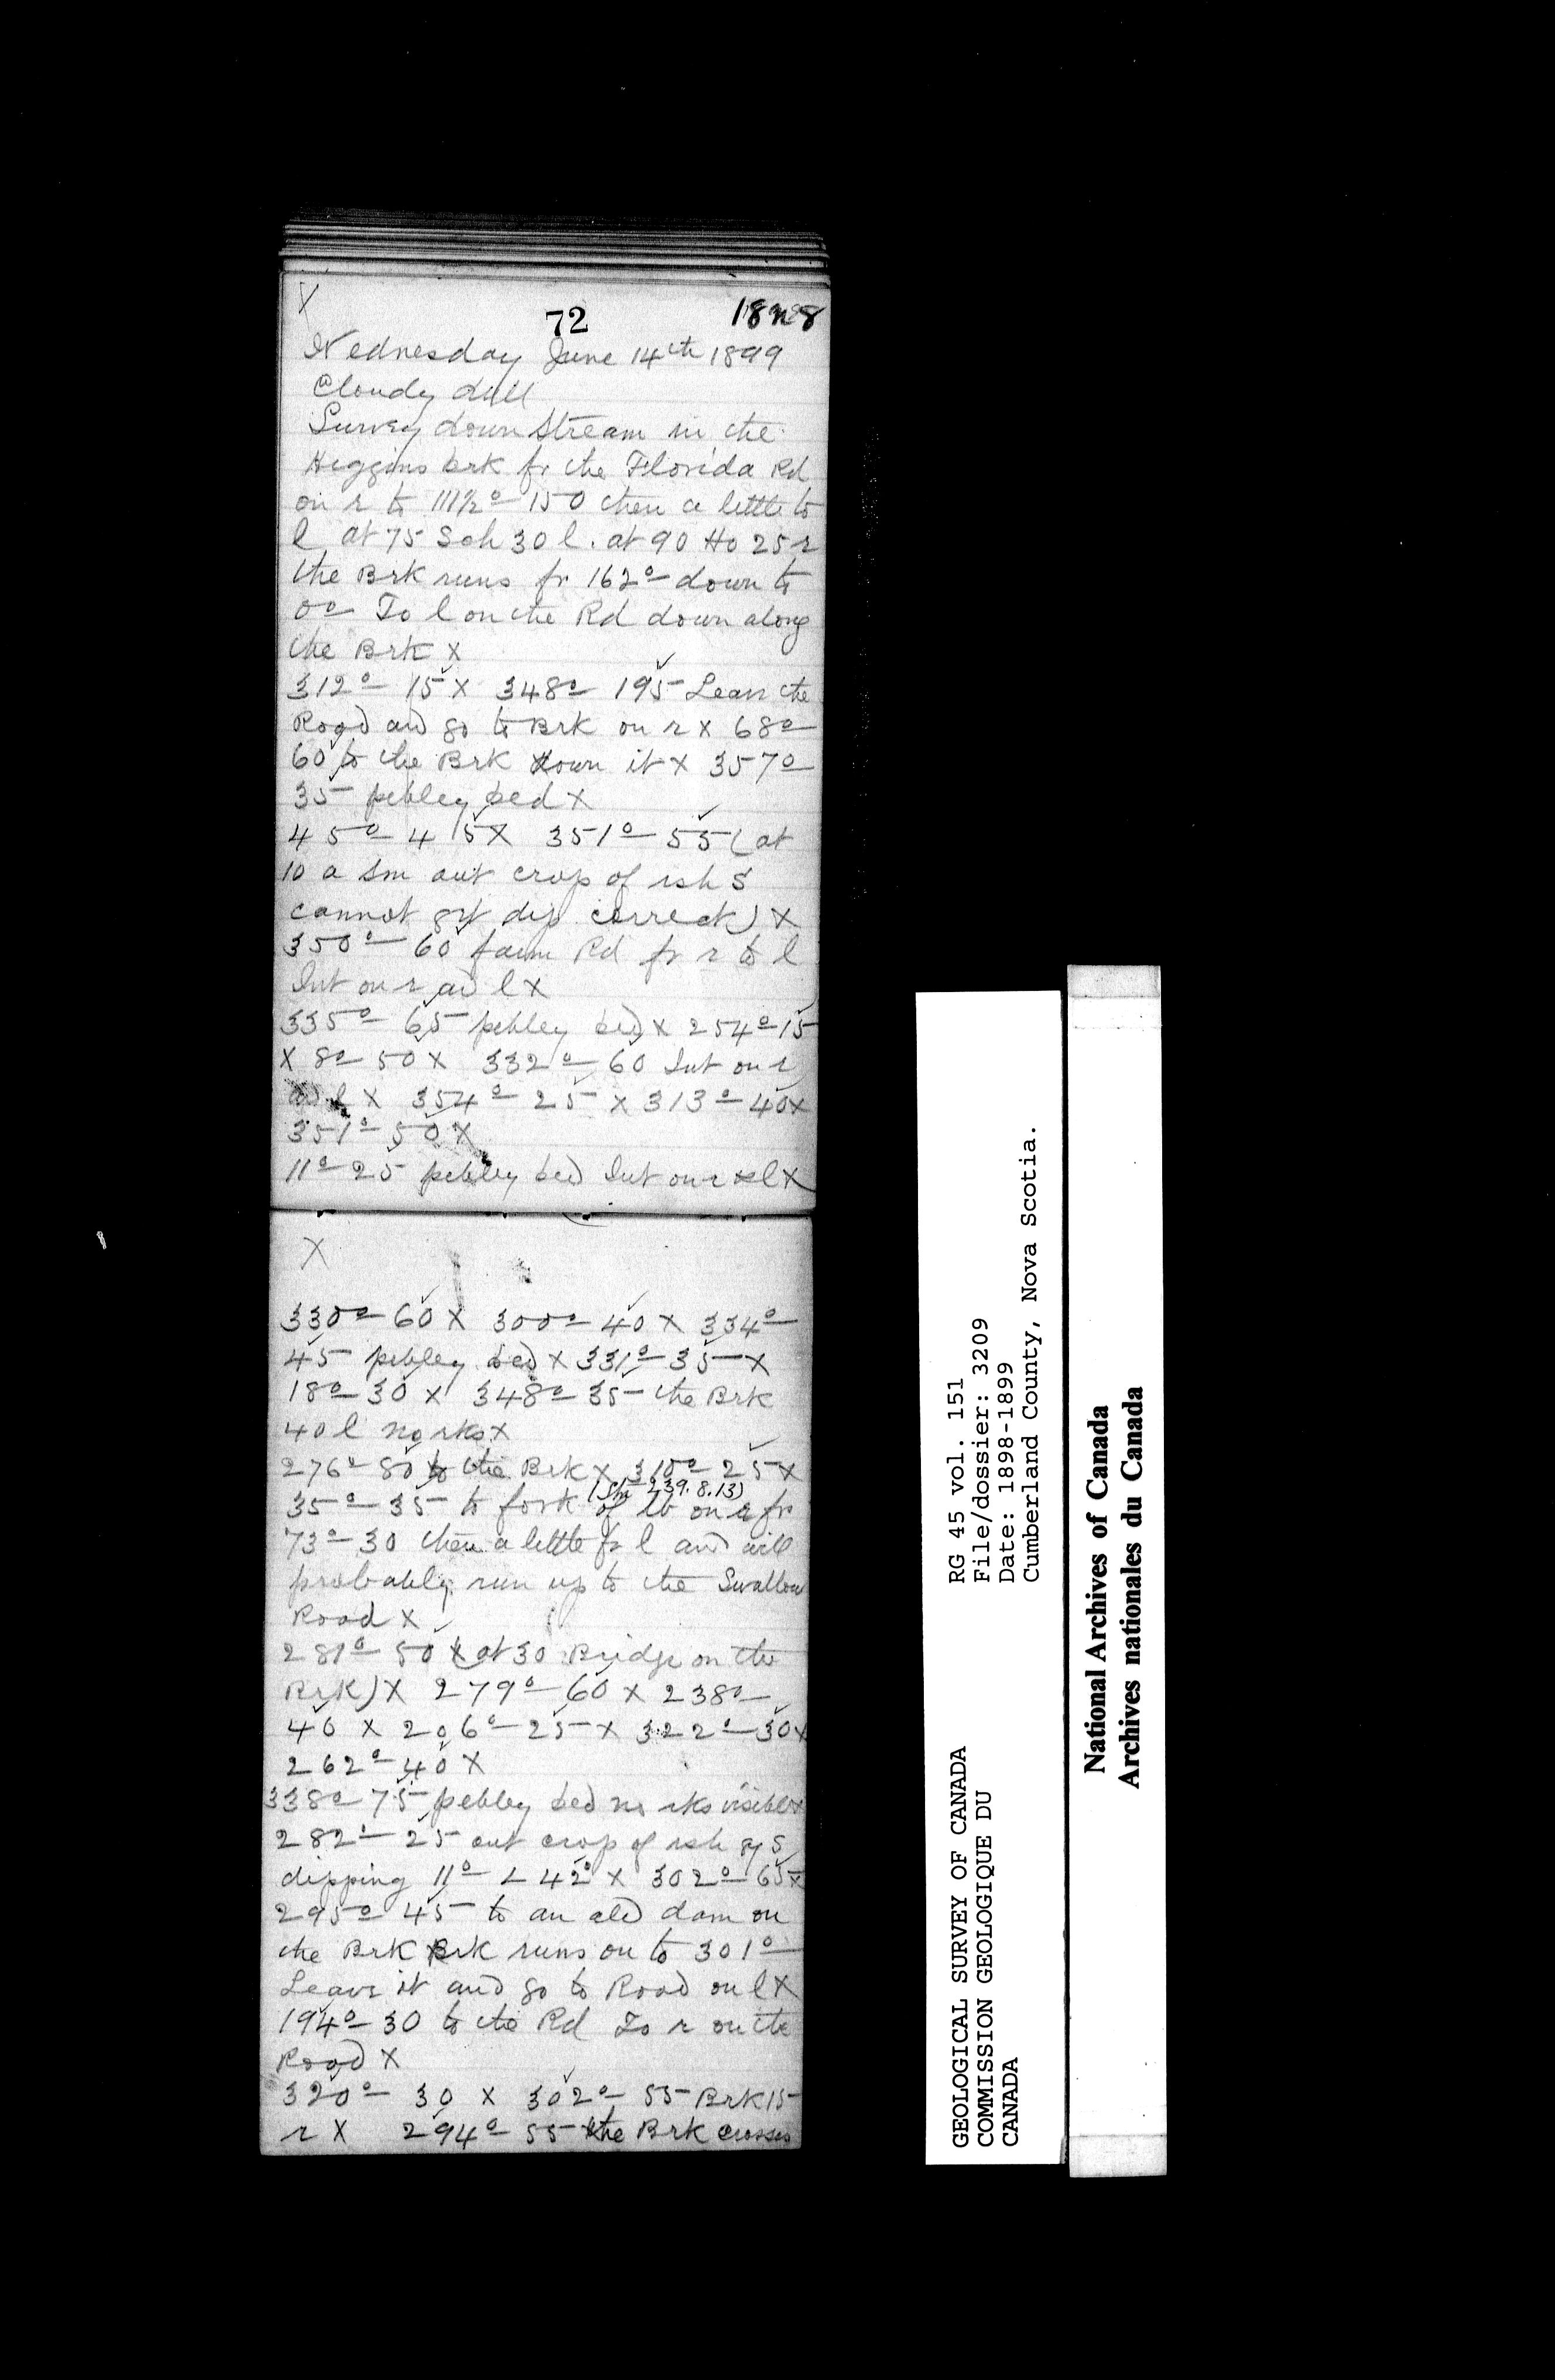 X
72
Wednesday June 14th 1899
Cloudy dull
Survey down stream in the
Higgins brk fr the Florida Rd
on r to 111½° 150 then a little to
l at 75 Sch 30 l. at 90 Ho 25 r
the Brk runs fr 162° down to
0° To l on the Rd down along
the Brk X
312° 15 X 348° 195 Leave the
Road and go to Brk on r X 68°
60 to the Brk down it X 357°
35 pebley bed X
45° 45 X 351° 55 (at
10 a sm out crop of rsh S
cannot get dip correct) X
350° 60 farm Rd fr r to l
Int on r and l X
335° 65 pebley bed X 254° 15
X 8° 50 X 332° 60 Int on r
and l X 354° 25 X 313° 40 X
351° 50 X
11° 25 pebley bed Int on r & l X
X
330° 60 X 300° 40 X 334°
45 pebley bed X 331° 35 X
18° 30 X 348° 35 the Brk
40 l no rks X
276° 80 to the Brk X 310° 25 X
239. 8. 13)
35° 35 to fork of lb on r fr
73° 30 then a little fr l and will
probably run up to the Swallow
Road X
281° 50 (at 30 Bridge on the
Brk) X 279° 60 X 238°
40 X 206° 25 X 322° 30 X
262° 40 X
338° 75 pebley bed no rks visible X
282° 25 out crop of rsh gy S
dipping 11° L 42° X 302° 65 X
295° 45 to an old dam on
the Brk Brk runs on to 301°
Leave it and go to Road on l X
194° 30 to the Rd To r on the
Road X
320° 30 X 302° 55 Brk 15
r X 294° 55 the Brk crosses
GEOLOGICAL SURVEY OF CANADA
COMMISSION GEOLOGIQUE DU
CANADA
RG 45 vol. 151
File/dossier: 3209
Date: 1898-1899
Cumberland County, Nova Scotia.
National Archives of Canada
Archives nationales du Canada